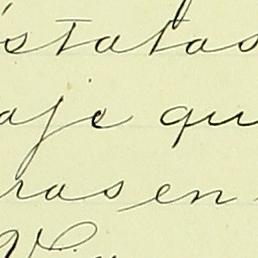 statas
aje qu
ras en
Vi